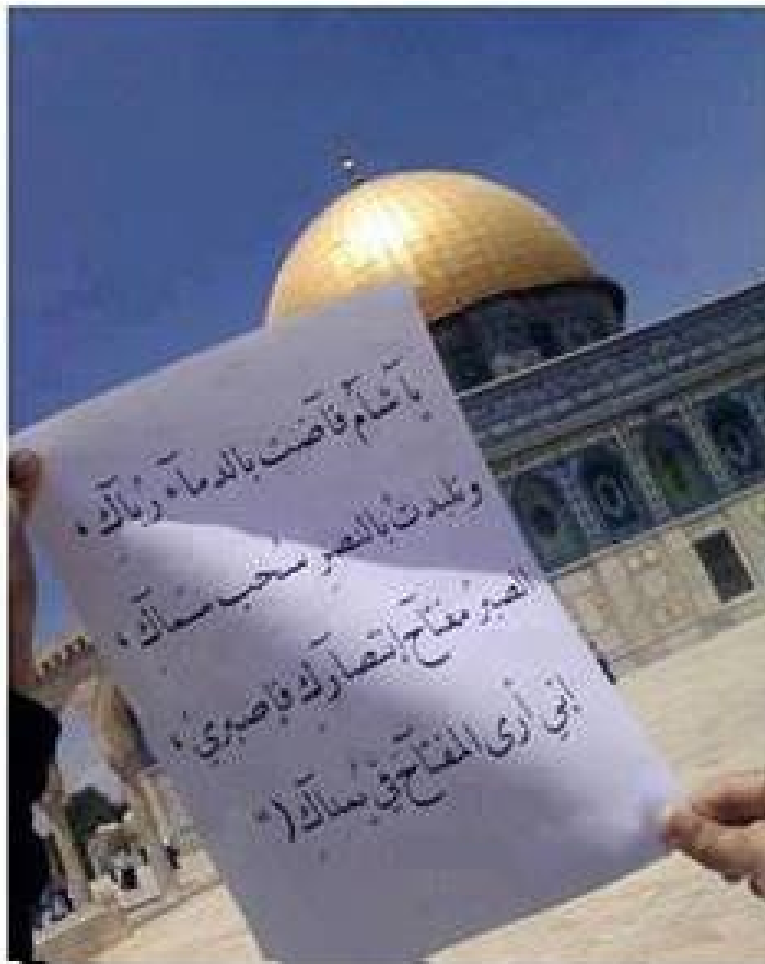 يا شامُ فاضت بالدماء رباكِ،
وتلبدت بالنصرِ سحب سماكِ،
الصبرُ مفتاح انتصارك فاصبري،
إني أرى المفتاح في يمناكِ("